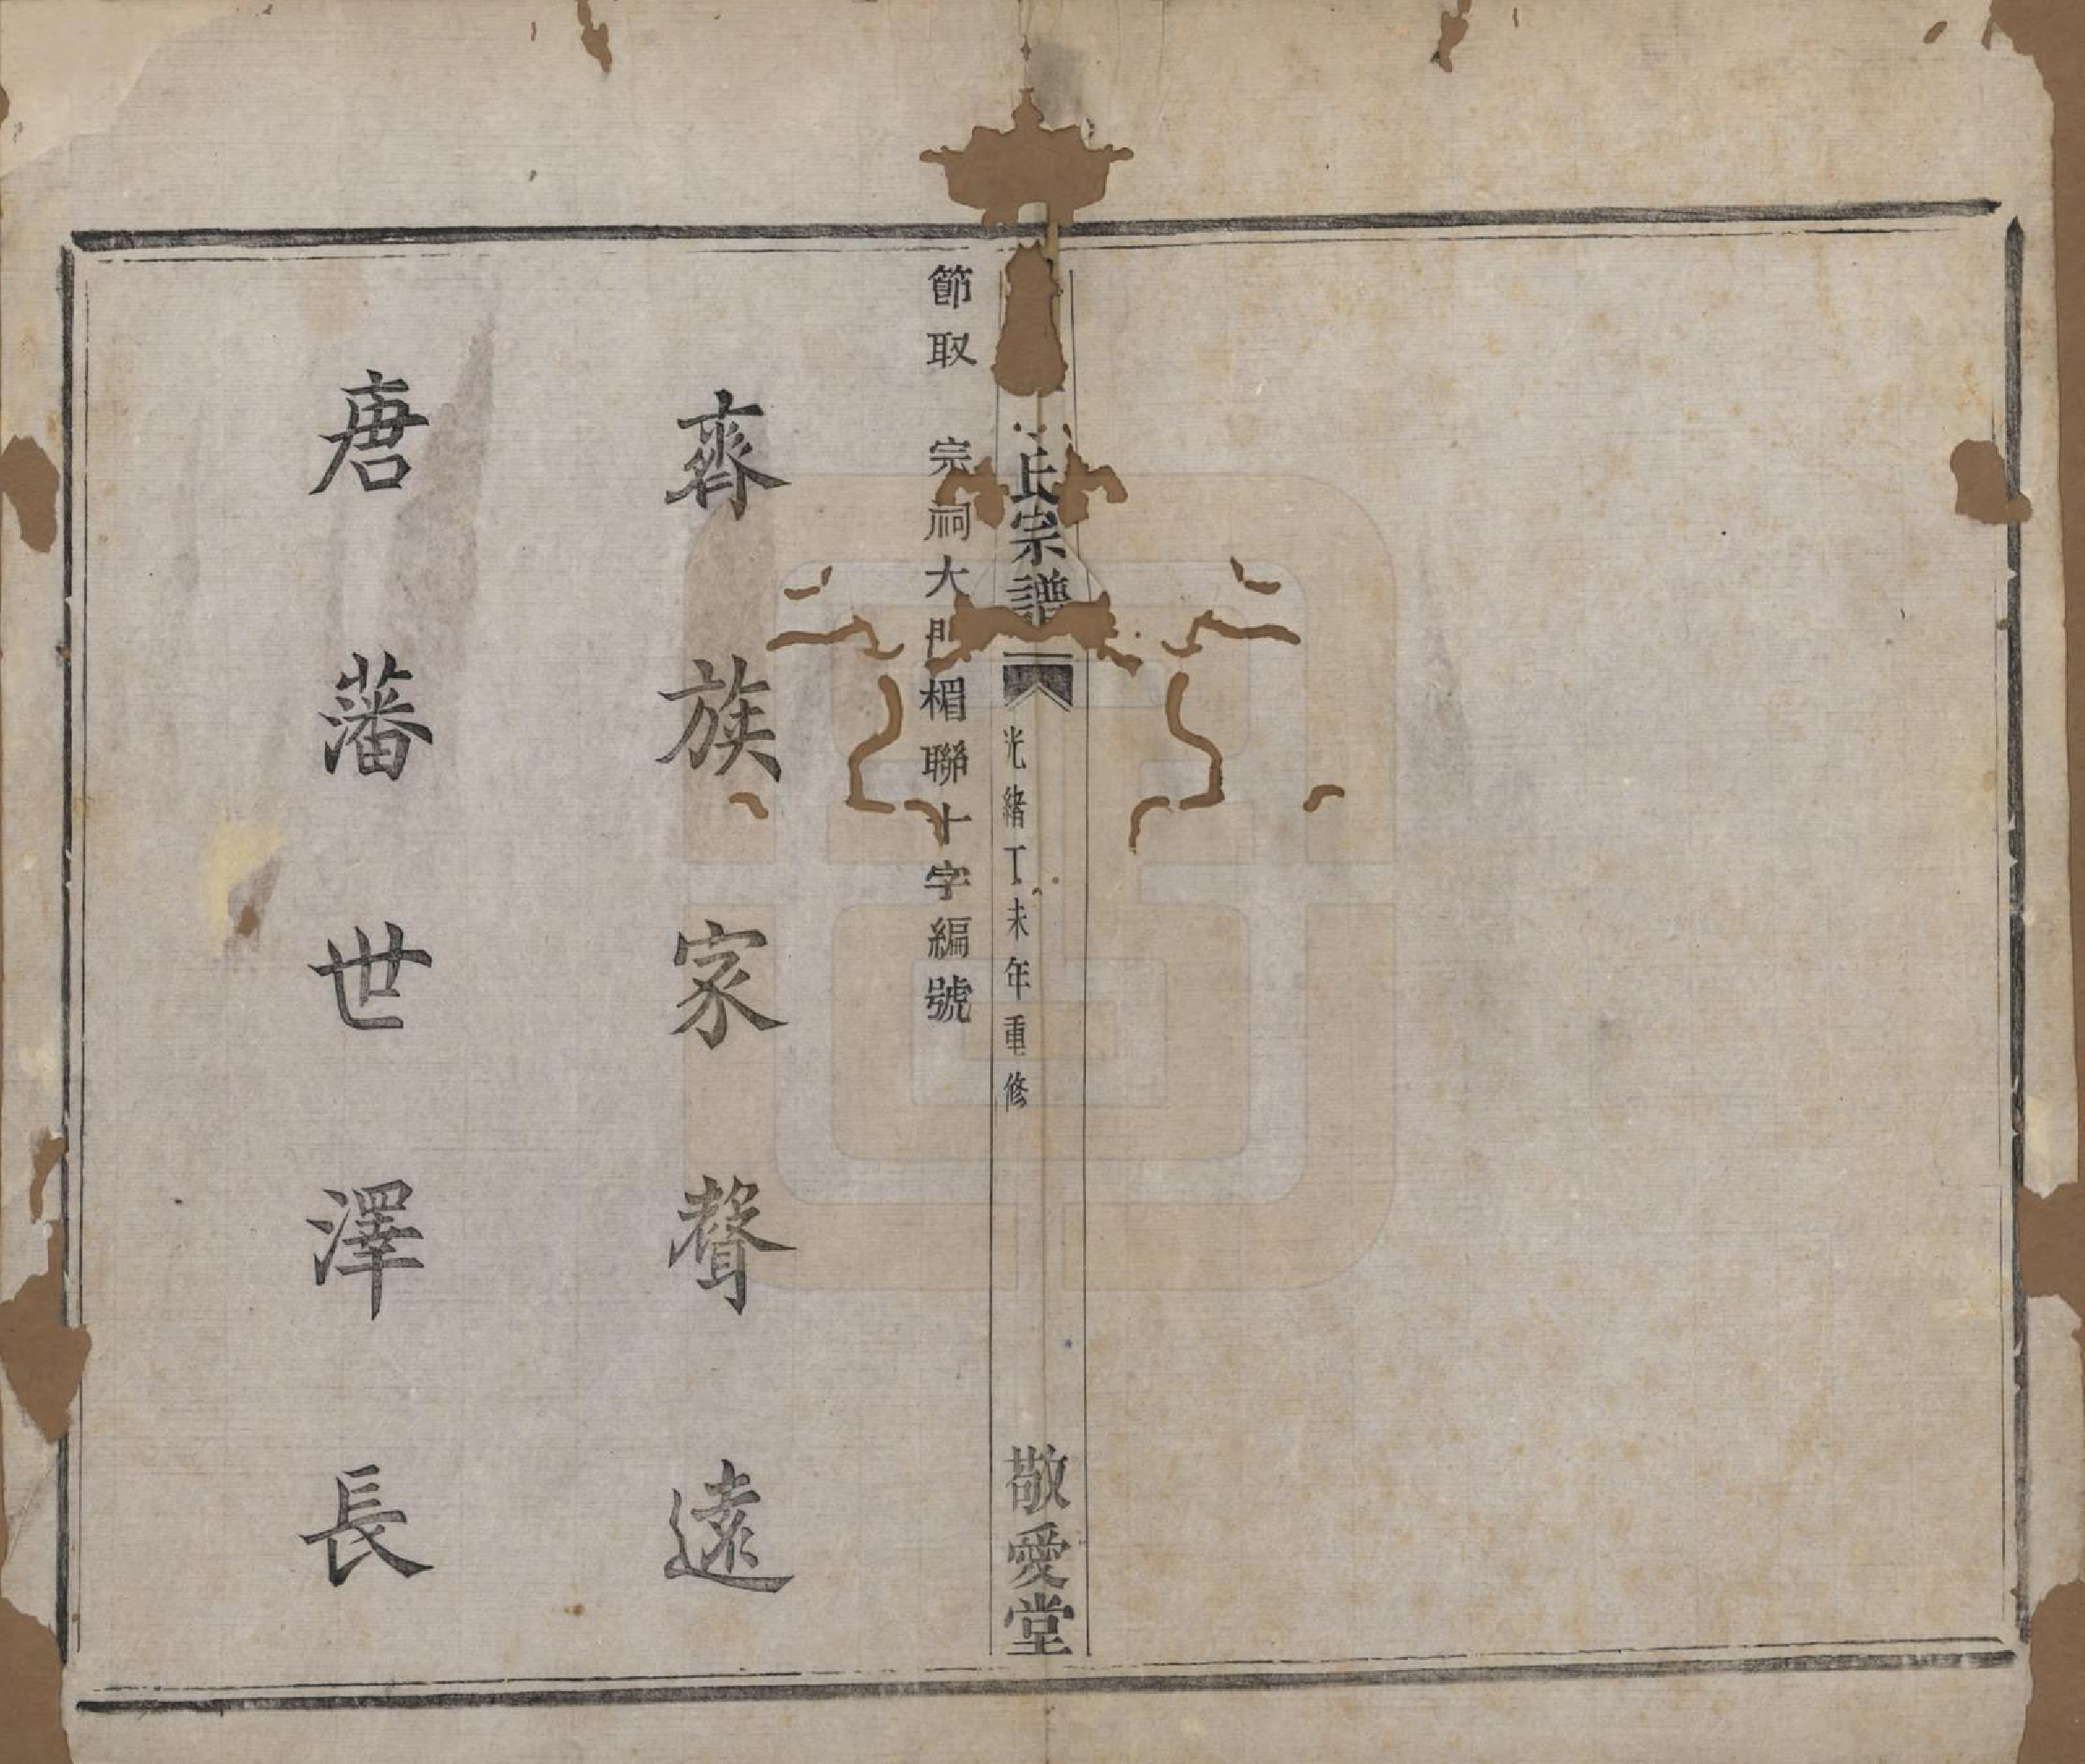 氏宗譜
光緒丁未年重修
敬愛堂
節取 宗祠大門楣聯十字編號
齊族家聲遠
唐藩世澤長